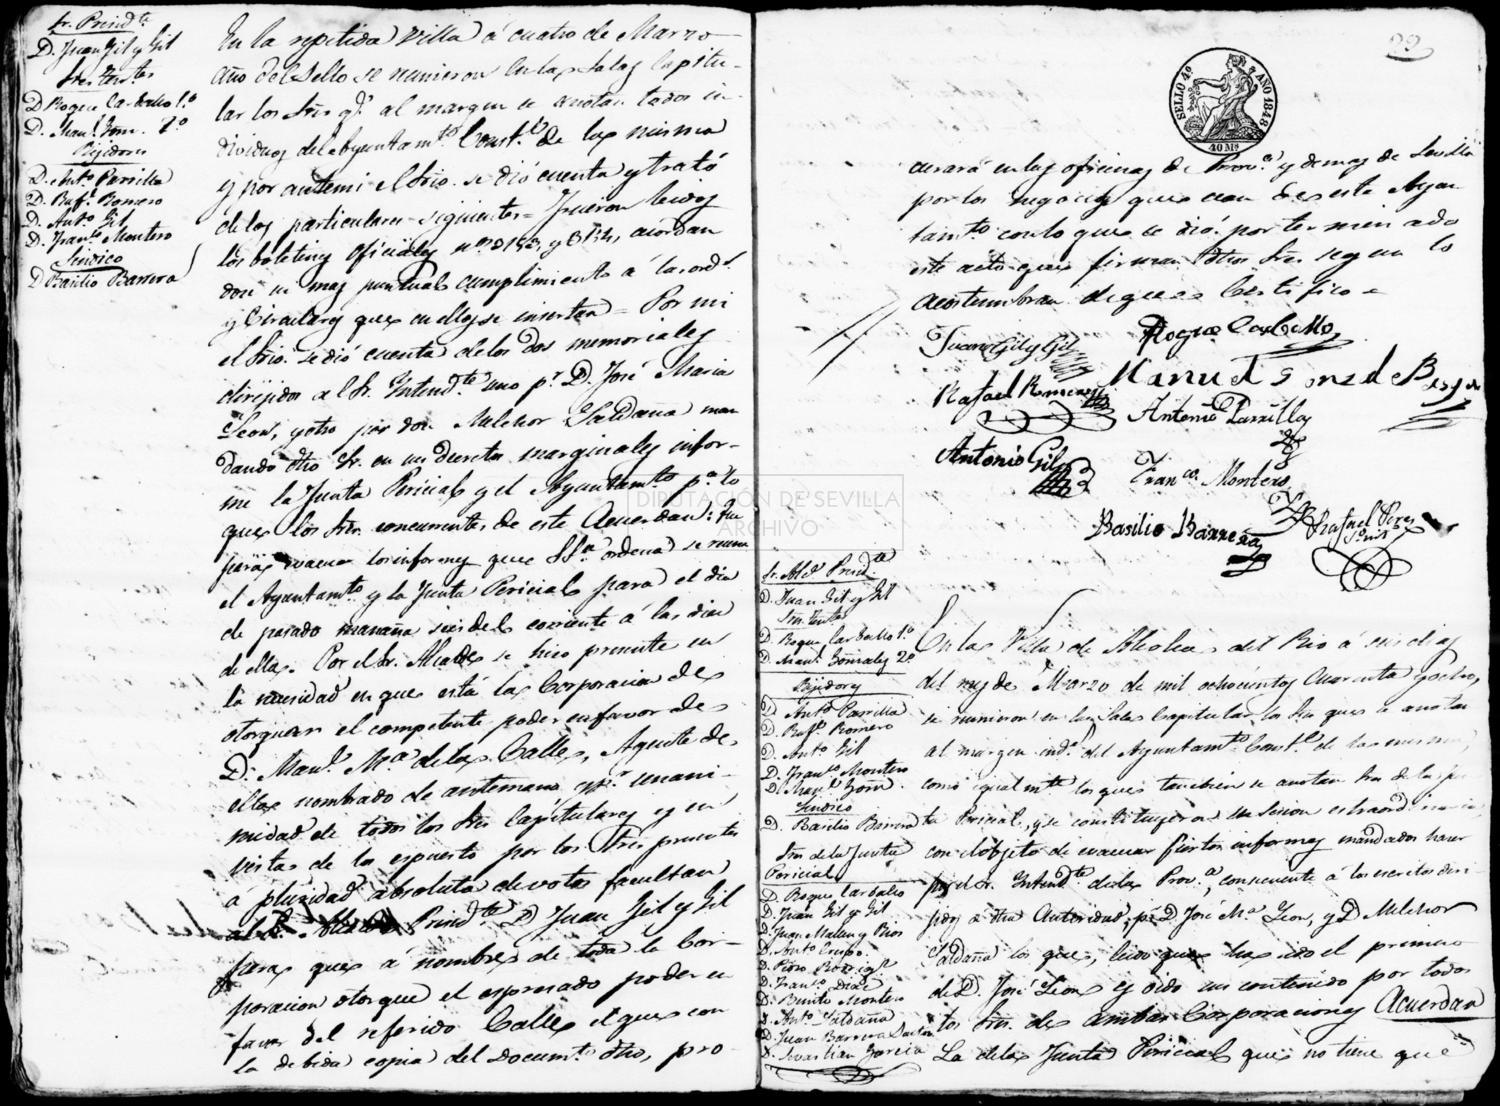 Sr. Presid.te
D. Juan Gil y Gil
Sres. Ten.tes
D Roque Carballo 1.º
D. Man.l Gom. 2.º
Rejidores
D. Ant.º Parrilla
D. Raf.l Romero
D. Ant.º Gil
D. Fran.co Montero
Sindico
D Basilio Barrera
En la repetida Villa á cuatro de Marzo
año del Sello se reunieron en las Salas Capitu-
lar los Sres q.e al margen se anotan todos in-
dividuos del Ayuntam.to Const.l de la misma
y por ante mi el Srio. se dió cuenta y trató
de los particulares siguientes = Fueron leidos
los boletines oficiales n.os y acordan
don su mas puntual cumplimiento á las ord.s
y Circulares que en ellos se insertan = Por mi
el Srio. se dió cuenta de los dos memoriales
dirijidos al Sr. Intend.te uno p.r D. José Maria
Leon, y otro por don Melchor Saldaña man
dando dho Sr. en un decreto marginales infor-
me la Junta Pericial y el Ayuntam.to p.a lo
que los Sres. concurrentes de este Acuerdan: Que
para evacuar los informes que S.S.a ordena se reuna
el Ayuntam.to y la Junta Pericial para el dia
de pasado mañana seis del corriente á las diez
de ella. Por el Sr. Alcalde se hizo presente en
la necesidad en que está la Corporacion de
otorgar el competente poder en favor de
D. Man.l M.a de la Calle, Agente de
ella nombrado de antemano p.r unani-
midad de todos los Sres Capitulares y en
vista de lo espuesto por los Sres presentes
á pluridad absoluta de votos facultan
al Sr. Presid.te D Juan Gil y Gil
para que á nombre de toda la Cor-
poracion otorgue el espresado poder en
favor del referido Calle el que con
la debida copia del Docum.to dho, pro-
22
SELLO 4º AÑO 1848
40 Ms
curará en las oficinas de Prov.a y demas de Sevilla
por los negocios que sean de este Ayun
tam.to con lo que se dió por terminado
este acto que firman dhos Sres. segun lo
acostumbran de que Certifico =
Juan Gil y Gil
Roque Carballo
Rafael Romero
Manuel Gonz de
Antonio Parrilla
Antonio Gil
Fran.co Montero
Basilio Barrera
Rafael Perez
DIPUTACIÓN DE SEVILLA
ARCHIVO
Sr. Alc.e Presid.te
D. Juan Gil y Gil
Sres. Tentes
D. Roque Carballo 1.º
D. Man.l Gonzalez 2.º
Rejidores
D. Ant.º Parrilla
D. Raf.l Romero
D. Ant.º Gil
D. Fran.co Montero
D. Man.l Gom.
Sindico
D. Basilio Barrera
Sres de la Junta
Pericial
D. Roque Carballo
D. Juan Gil y Gil
D. Juan Malen y Rios
D. Ant.º Crespo
D. Pedro Rodrig.z
D. Fran.co Diaz
D. Benito Montero
D. Ant.º Saldaña
D. Juan Barrera
D. Sevastian Garcia
En la Villa de Alcolea del Rio á seis dias
del mes de Marzo de mil ochocientos Cuarenta y ocho,
se reunieron en las Salas Capitular los Sres que se anotan
al margen ind.s del Ayuntam.to Const.l de la misma,
como igualm.te los que tambien se anotan Sres de la Jun
ta Pericial, y se constituyeron en sesion estraordinaria
con el objeto de evacuar ciertos informes mandados hacer
por el Sr. Intend.te de la Prov.a, consecuente á los escritos diri
jidos á dha Autoridad, p.r D José M.a Leon, y D Melchor
Saldaña los que, leido que ha sido el primero
de D. José Leon y oido su contenido por todos
los Sres. de ambas Corporaciones Acuerdan
La de la Junta Pericial que no tiene que